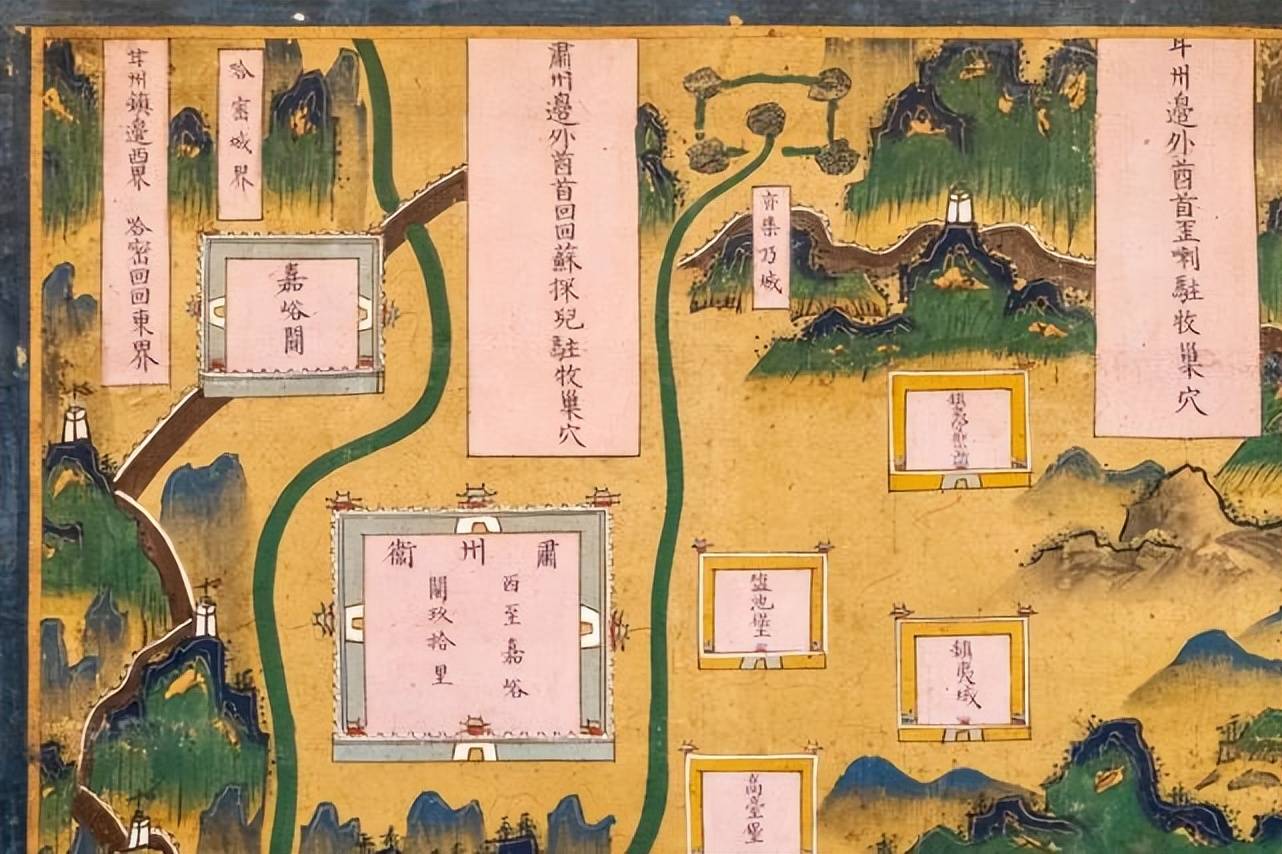 甘州邊外酋首歪喇駐牧巢穴
亦集乃城
肅州邊外酋首回回蘇採兒駐牧巢穴
哈密城界
甘州鎮邊西界 哈密回回東界
嘉峪關
鎮夷城
鹽池堡
高臺堡
肅州衞
西至嘉峪
關玖拾里